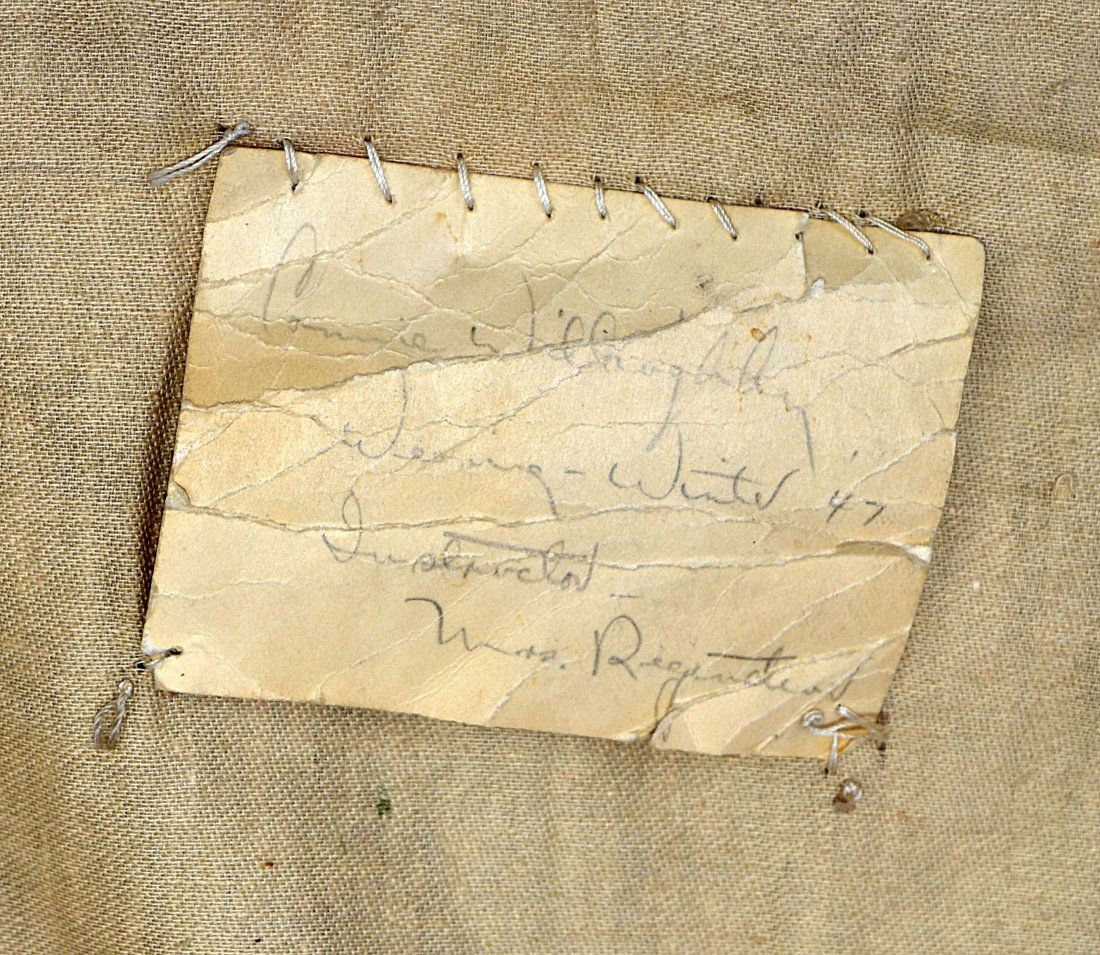 Connie Willoughby
Weaving - Winter '47
Instructor -
Mrs.